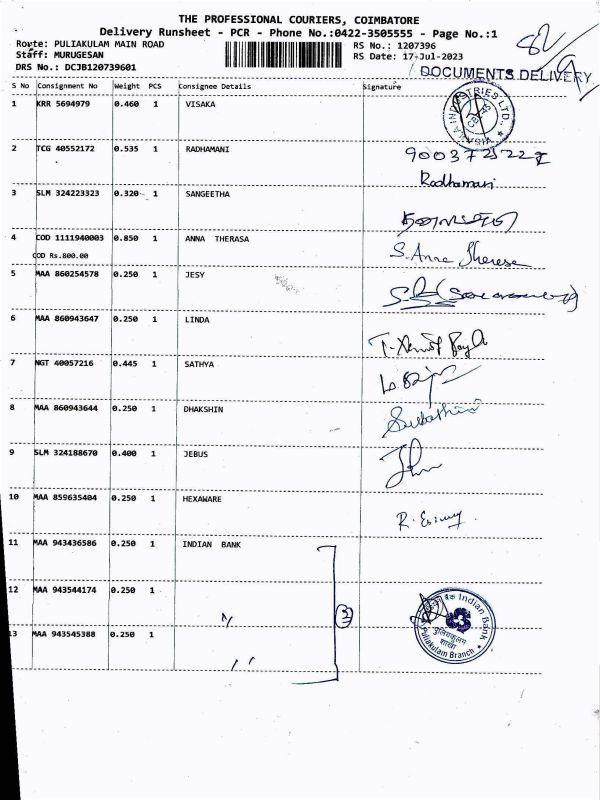 THE PROFESSIONAL COURIERS, COIMBATORE
Delivery Runsheet - PCR - Phone No.:0422-3505555 - Page No.:1
Route: PULIAKULAM MAIN ROAD RS No.: 1207396
Staff: MURUGESAN RS Date: 17-Jul-2023
DRS No.: DCJB120739601 DOCUMENTS DELIVERY
S No Consignment No Weight PCS Consignee Details Signature
1 KRR 5694979 0.460 1 VISAKA
2 TCG 40552172 0.535 1 RADHAMANI
Radhamani
3 SLM 324223323 0.320 1 SANGEETHA
4 COD 1111940003 0.850 1 ANNA THERASA
COD Rs.800.00 S. Anna Theresa
5 MAA 860254578 0.250 1 JESY
6 MAA 860943647 0.250 1 LINDA
7 NGT 40057216 0.445 1 SATHYA
8 MAA 860943644 0.250 1 DHAKSHIN
9 SLM 324188670 0.400 1 JEBUS
10 MAA 859635404 0.250 1 HEXAWARE
11 MAA 943436586 0.250 1 INDIAN BANK
12 MAA 943544174 0.250 1 "
3
Indian Bank
पुलियकुलम
शाखा
Puliakulam Branch
13 MAA 943545388 0.250 1 "